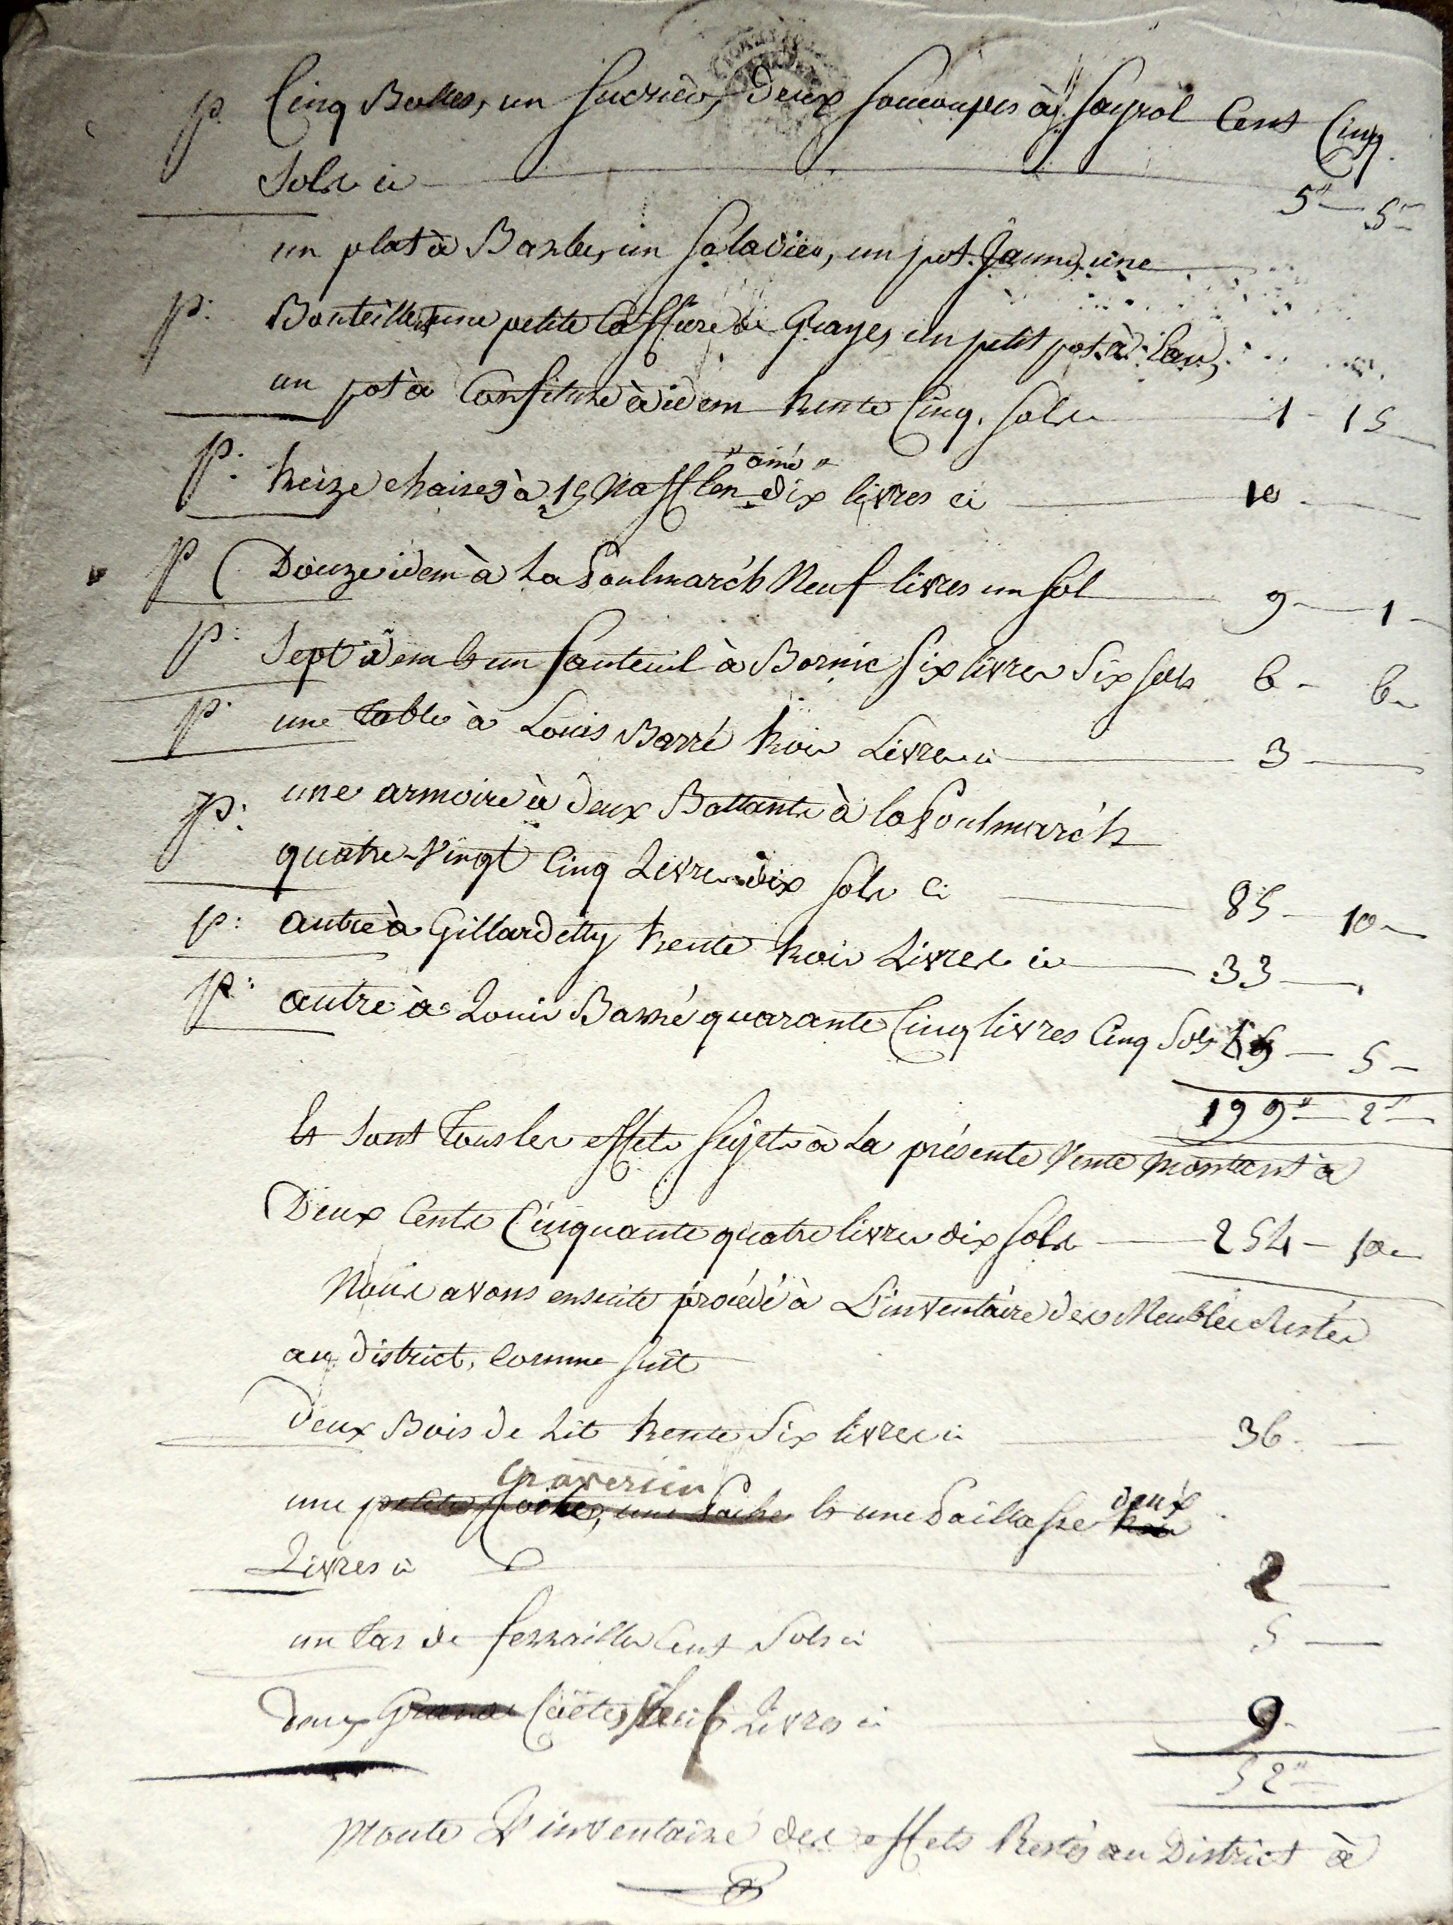 p. Cinq Bolles, un Sucrier, deux soucoupes à Sayrol Cent Cinq
Sols ci 5" 5s
un plat à Barbe, un saladier, un pot Jaune, une
p: Bouteille, une petite Caffière de Grayes, un petit pot à l'eau,
un pot à Confiture à idem trente Cinq sols 1 - 15
" aimé "
p: treize chaises à dix livres ci 10
p Douze idem à La Poulmarc'h Neuf livres un sol 9 - 1
p: Sept idem & un fauteuil à Bornic six livres Six sols 6 - 6
p. une table à Louis Barré trois Livres ci 3
p: une armoire à deux Battants à la Poulmarc'h
quatre-Vingt Cinq Livres dix sols ci 85 - 10
p: autre à Gillardetty trente trois Livres ci 33
p: autre à Louis Barré quarante Cinq livres Cinq Sols 45 - 5
199" - 2s
Et sont tous les effets Sujets à La présente Vente montant à
Deux Cents Cinquante quatre livres dix sols 254 - 10
Nous avons ensuite procédé à L'inventaire des Meubles Restés
au District, Comme suit
deux Bois de Lit trente Six livres ci 36
traversin
une petite Coëte, une & une Paillasse deux
Livres ci 2
un tas de ferraille Cent Sols ci 5
deux Grande Coëtes Neuf Livres ci 9
52"
Monte L'inventaire des effets Restés au District à